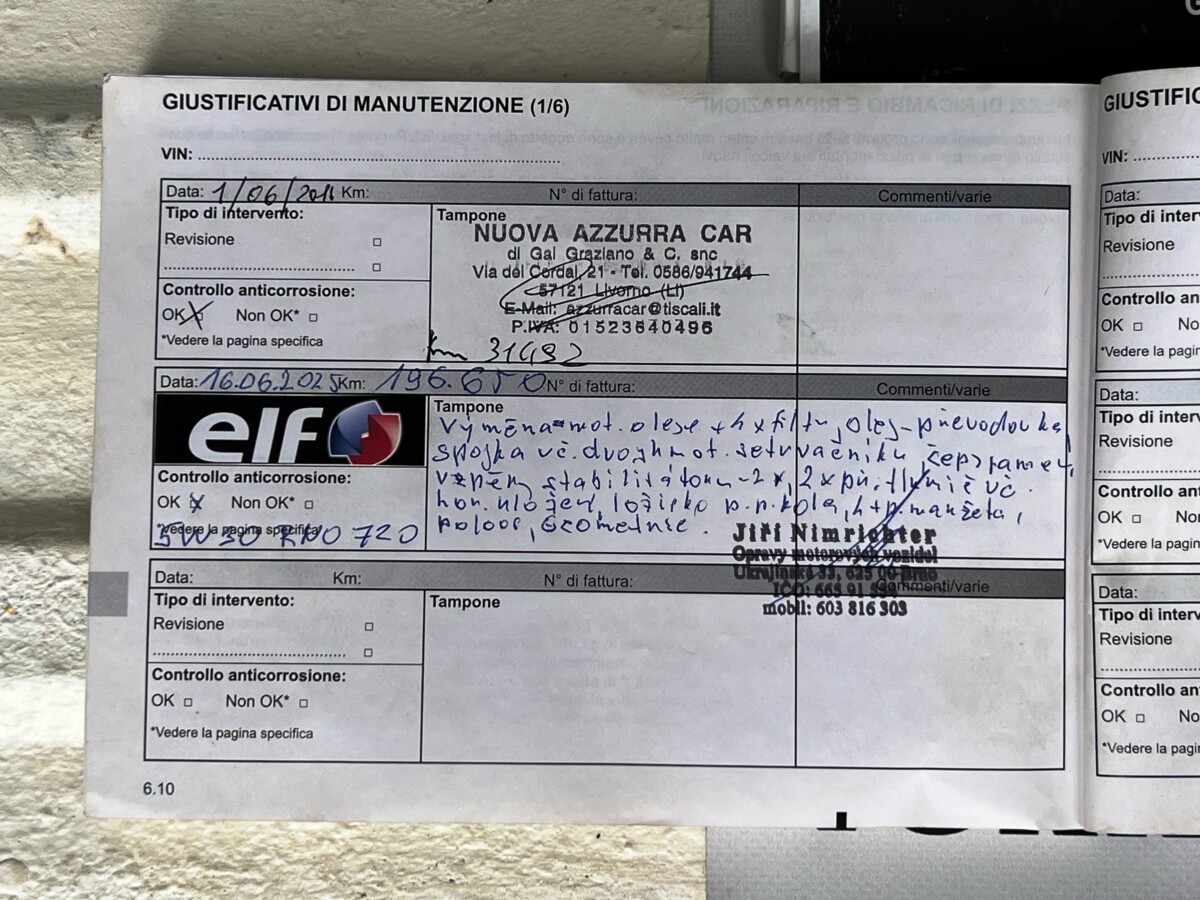 GIUSTIFICATIVI DI MANUTENZIONE (1/6)
VIN:
Data: 1/06/2016 Km: N° di fattura: Commenti/varie
Tipo di intervento:
Revisione
Controllo anticorrosione:
OK Non OK*
*Vedere la pagina specifica
Tampone
NUOVA AZZURRA CAR
di Gal Graziano & C. snc
Via del Cordai, 21 - Tel. 0586/941744
57121 Livorno (LI)
E-Mail: azzurracar@tiscali.it
P.IVA: 01523640496
Km
Data: 16.06.2025 Km: 196.650 N° di fattura: Commenti/varie
elf
Controllo anticorrosione:
OK Non OK*
*Vedere la pagina specifica
5W30 RNO 720
Tampone
Výměna mot. oleje + 4xfiltr, olej-převodovka,
spojka vč. dvojhmot. setrvačníku,
vzpěry stabilizátoru-2x, 2x př. tlumič vč.
hor. uložení, ložisko p.p. kola, manžeta,
poloos, geometrie.
Jiří Nimrichter
Opravy motorových vozidel
Ukrajinská 33, 625 00 Brno
IČO: 663 91
mobil: 603 816 303
Data: Km: N° di fattura: Commenti/varie
Tipo di intervento:
Revisione
Controllo anticorrosione:
OK Non OK*
*Vedere la pagina specifica
Tampone
6.10
GIUSTIFIC
VIN:
Data:
Tipo di interv
Revisione
Controllo an
OK No
*Vedere la pagir
Data:
Tipo di interv
Revisione
Controllo an
OK No
*Vedere la pagir
Data:
Tipo di interv
Revisione
Controllo an
OK No
*Vedere la pagir